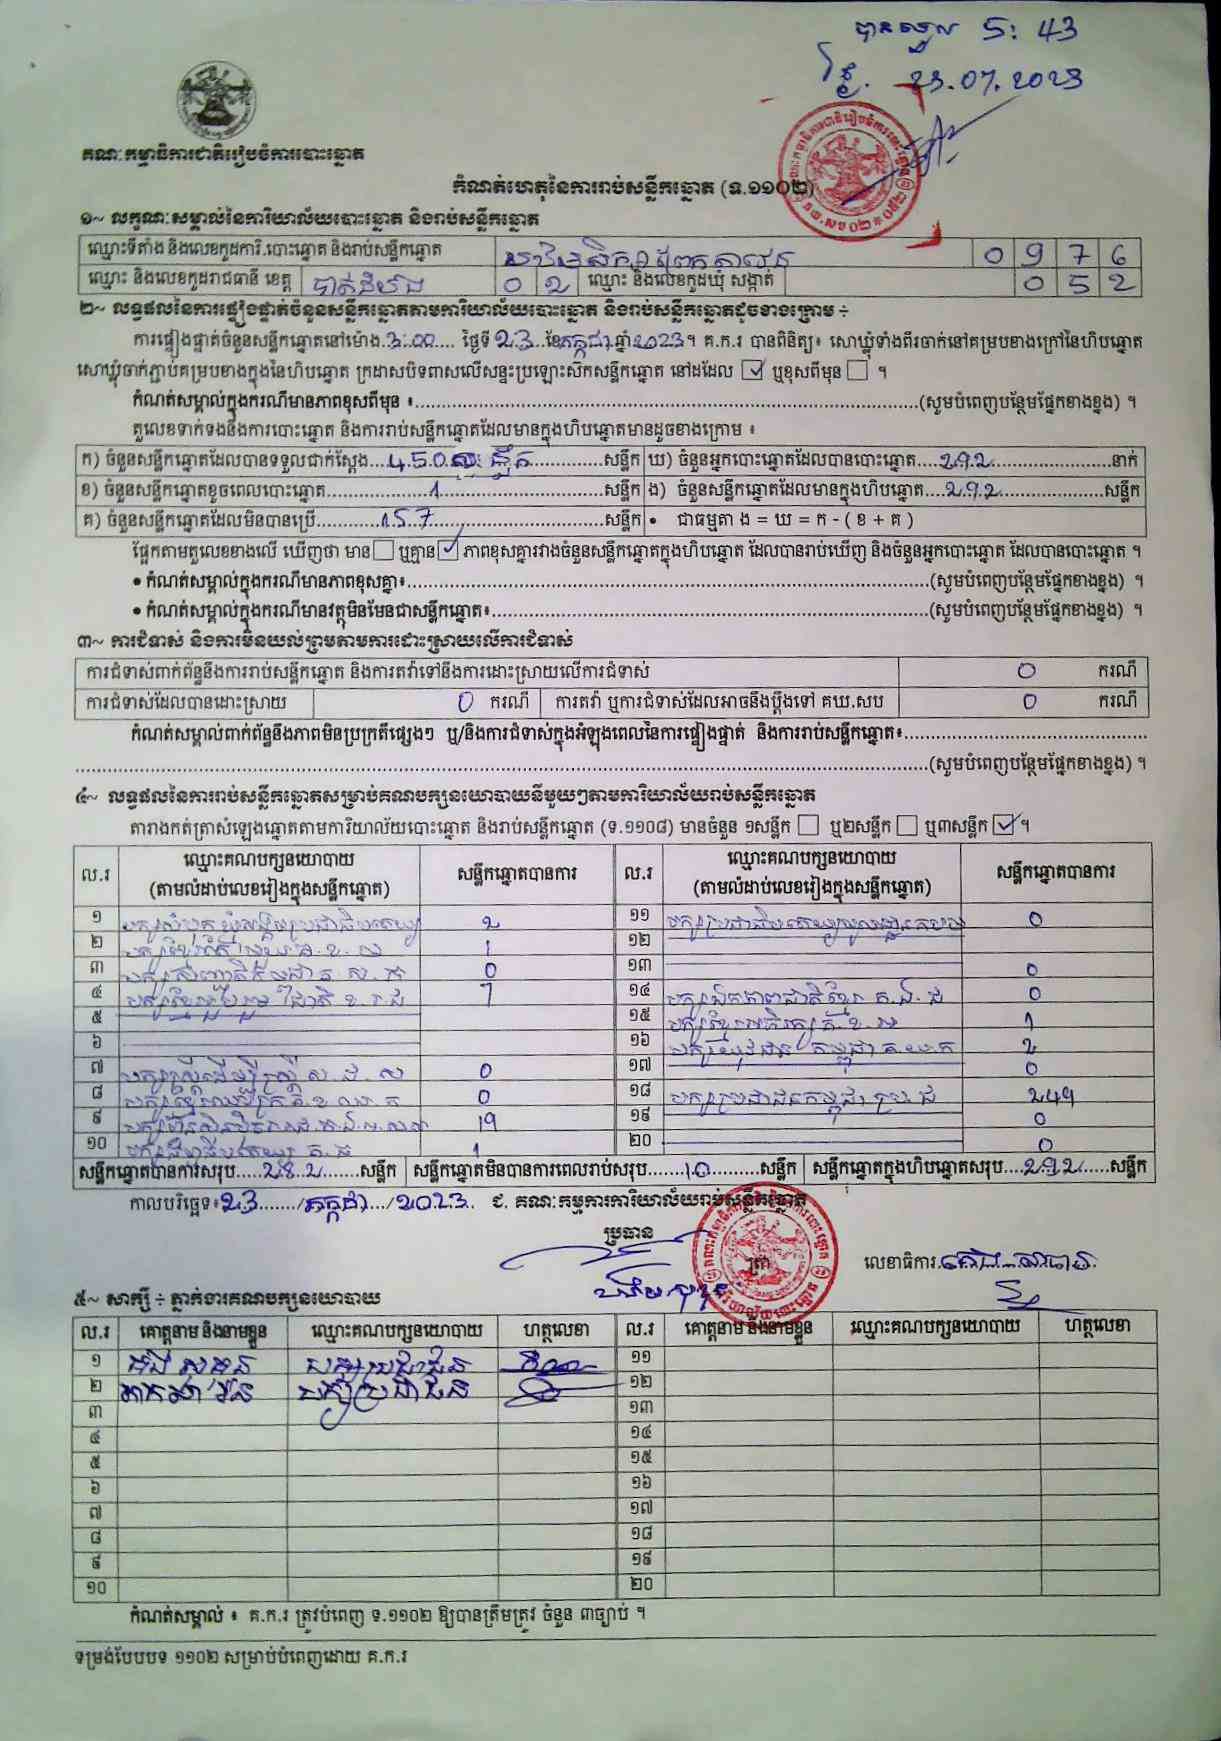 បានទទួល 5: 43
ថ្ងៃ. 23.07.2023
គណៈកម្មាធិការជាតិរៀបចំការបោះឆ្នោត
កំណត់ហេតុនៃការរាប់សន្លឹកឆ្នោត (ទ.១១០២)
១~ លក្ខណៈសម្គាល់នៃការិយាល័យបោះឆ្នោត និងរាប់សន្លឹកឆ្នោត
ឈ្មោះទីតាំង និងលេខកូដការិ.បោះឆ្នោត និងរាប់សន្លឹកឆ្នោត 0 9 7 6
ឈ្មោះ និងលេខកូដរាជធានី ខេត្ត បាត់ដំបង 0 2 ឈ្មោះ និងលេខកូដឃុំ សង្កាត់ 0 5 2
២~ លទ្ធផលនៃការផ្ទៀងផ្ទាត់ចំនួនសន្លឹកឆ្នោតតាមការិយាល័យបោះឆ្នោត និងរាប់សន្លឹកឆ្នោតដូចខាងក្រោម ÷
ការផ្ទៀងផ្ទាត់ចំនួនសន្លឹកឆ្នោតនៅម៉ោង.3:00.... ថ្ងៃទី23..ខែកក្កដា.ឆ្នាំ2023។ គ.ក.រ បានពិនិត្យ៖ សោឃ្លុំទាំងពីរចាក់នៅគម្របខាងក្រៅនៃហិបឆ្នោត
សោឃ្លុំចាក់ភ្ជាប់គម្របខាងក្នុងនៃហិបឆ្នោត ក្រដាសបិទពាសលើសន្ទះប្រឡោះសិកសន្លឹកឆ្នោត នៅដដែល ☑ ឬខុសពីមុន ☐ ។
កំណត់សម្គាល់ក្នុងករណីមានភាពខុសពីមុន ៖....(សូមបំពេញបន្ថែមផ្នែកខាងខ្នង) ។
តួលេខទាក់ទងនឹងការបោះឆ្នោត និងការរាប់សន្លឹកឆ្នោតដែលមានក្នុងហិបឆ្នោតមានដូចខាងក្រោម ៖
ក) ចំនួនសន្លឹកឆ្នោតដែលបានទទួលជាក់ស្តែង...450....សន្លឹក ឃ) ចំនួនអ្នកបោះឆ្នោតដែលបានបោះឆ្នោត....292....នាក់
ខ) ចំនួនសន្លឹកឆ្នោតខូចពេលបោះឆ្នោត....1....សន្លឹក ង) ចំនួនសន្លឹកឆ្នោតដែលមានក្នុងហិបឆ្នោត....292....សន្លឹក
គ) ចំនួនសន្លឹកឆ្នោតដែលមិនបានប្រើ....157....សន្លឹក • ជាធម្មតា ង = ឃ = ក - ( ខ + គ )
ផ្អែកតាមតួលេខខាងលើ ឃើញថា មាន ☐ ឬគ្មាន ☑ ភាពខុសគ្នារវាងចំនួនសន្លឹកឆ្នោតក្នុងហិបឆ្នោត ដែលបានរាប់ឃើញ និងចំនួនអ្នកបោះឆ្នោត ដែលបានបោះឆ្នោត ។
• កំណត់សម្គាល់ក្នុងករណីមានភាពខុសគ្នា៖....(សូមបំពេញបន្ថែមផ្នែកខាងខ្នង) ។
• កំណត់សម្គាល់ក្នុងករណីមានវត្ថុមិនមែនជាសន្លឹកឆ្នោត៖....(សូមបំពេញបន្ថែមផ្នែកខាងខ្នង) ។
៣~ ការជំទាស់ និងការមិនយល់ព្រមតាមការដោះស្រាយលើការជំទាស់
ការជំទាស់ពាក់ព័ន្ធនឹងការរាប់សន្លឹកឆ្នោត និងការតវ៉ាទៅនឹងការដោះស្រាយលើការជំទាស់ 0 ករណី
ការជំទាស់ដែលបានដោះស្រាយ 0 ករណី ការតវ៉ា ឬការជំទាស់ដែលអាចនឹងប្តឹងទៅ គឃ.សប 0 ករណី
កំណត់សម្គាល់ពាក់ព័ន្ធនឹងភាពមិនប្រក្រតីផ្សេងៗ ឬ/និងការជំទាស់ក្នុងអំឡុងពេលនៃការផ្ទៀងផ្ទាត់ និងការរាប់សន្លឹកឆ្នោត៖....
....(សូមបំពេញបន្ថែមផ្នែកខាងខ្នង) ។
៤~ លទ្ធផលនៃការរាប់សន្លឹកឆ្នោតសម្រាប់គណបក្សនយោបាយនីមួយៗតាមការិយាល័យរាប់សន្លឹកឆ្នោត
តារាងកត់ត្រាសំឡេងឆ្នោតតាមការិយាល័យបោះឆ្នោត និងរាប់សន្លឹកឆ្នោត (ទ.១១០៨) មានចំនួន ១សន្លឹក ☐ ឬ២សន្លឹក ☐ ឬ៣សន្លឹក ☑ ។
ល.រ ឈ្មោះគណបក្សនយោបាយ (តាមលំដាប់លេខរៀងក្នុងសន្លឹកឆ្នោត) សន្លឹកឆ្នោតបានការ ល.រ ឈ្មោះគណបក្សនយោបាយ (តាមលំដាប់លេខរៀងក្នុងសន្លឹកឆ្នោត) សន្លឹកឆ្នោតបានការ
១ បក្សសំបុកឃ្មុំសង្គមប្រជាធិបតេយ្យ 2 ១១ 0
២ 1 ១២
៣ 0 ១៣ 0
៤ 7 ១៤ បក្សឯកភាពជាតិខ្មែរ 0
៥ ១៥ 1
៦ ១៦ 2
៧ បក្សស្ត្រីដើម្បីស្ត្រី 0 ១៧ 0
៨ 0 ១៨ បក្សប្រជាជនកម្ពុជា 249
៩ 19 ១៩ 0
១០ 1 ២០ 0
សន្លឹកឆ្នោតបានការសរុប....282....សន្លឹក សន្លឹកឆ្នោតមិនបានការពេលរាប់សរុប....10....សន្លឹក សន្លឹកឆ្នោតក្នុងហិបឆ្នោតសរុប....292....សន្លឹក
កាលបរិច្ឆេទ៖23....../កក្កដា.../2023.. ជ. គណៈកម្មការការិយាល័យរាប់សន្លឹកឆ្នោត
ប្រធាន
ត្រា លេខាធិការ
៥~ សាក្សី ÷ ភ្នាក់ងារគណបក្សនយោបាយ
ល.រ គោត្តនាម និងនាមខ្លួន ឈ្មោះគណបក្សនយោបាយ ហត្ថលេខា ល.រ គោត្តនាម និងនាមខ្លួន ឈ្មោះគណបក្សនយោបាយ ហត្ថលេខា
១ បក្សប្រជាជន ១១
២ បក្សប្រជាជន ១២
៣ ១៣
៤ ១៤
៥ ១៥
៦ ១៦
៧ ១៧
៨ ១៨
៩ ១៩
១០ ២០
កំណត់សម្គាល់ ៖ គ.ក.រ ត្រូវបំពេញ ទ.១១០២ ឱ្យបានត្រឹមត្រូវ ចំនួន ៣ច្បាប់ ។
ទម្រង់បែបបទ ១១០២ សម្រាប់បំពេញដោយ គ.ក.រ